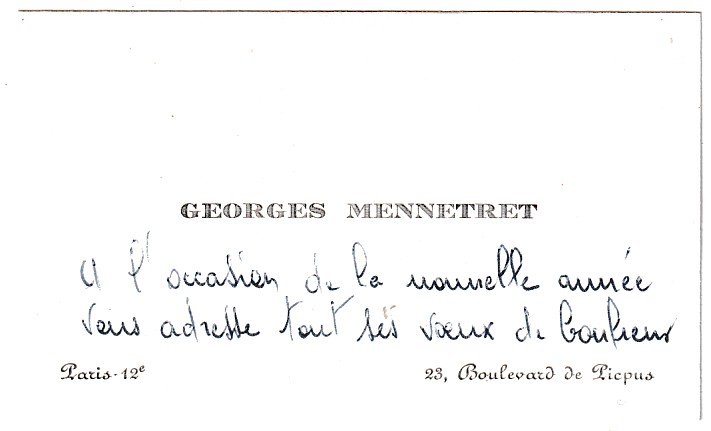 GEORGES MENNETRET
A l'occasion de la nouvelle année
vous adresse tout ses vœux de bonheur
Paris-12e
23, Boulevard de Picpus